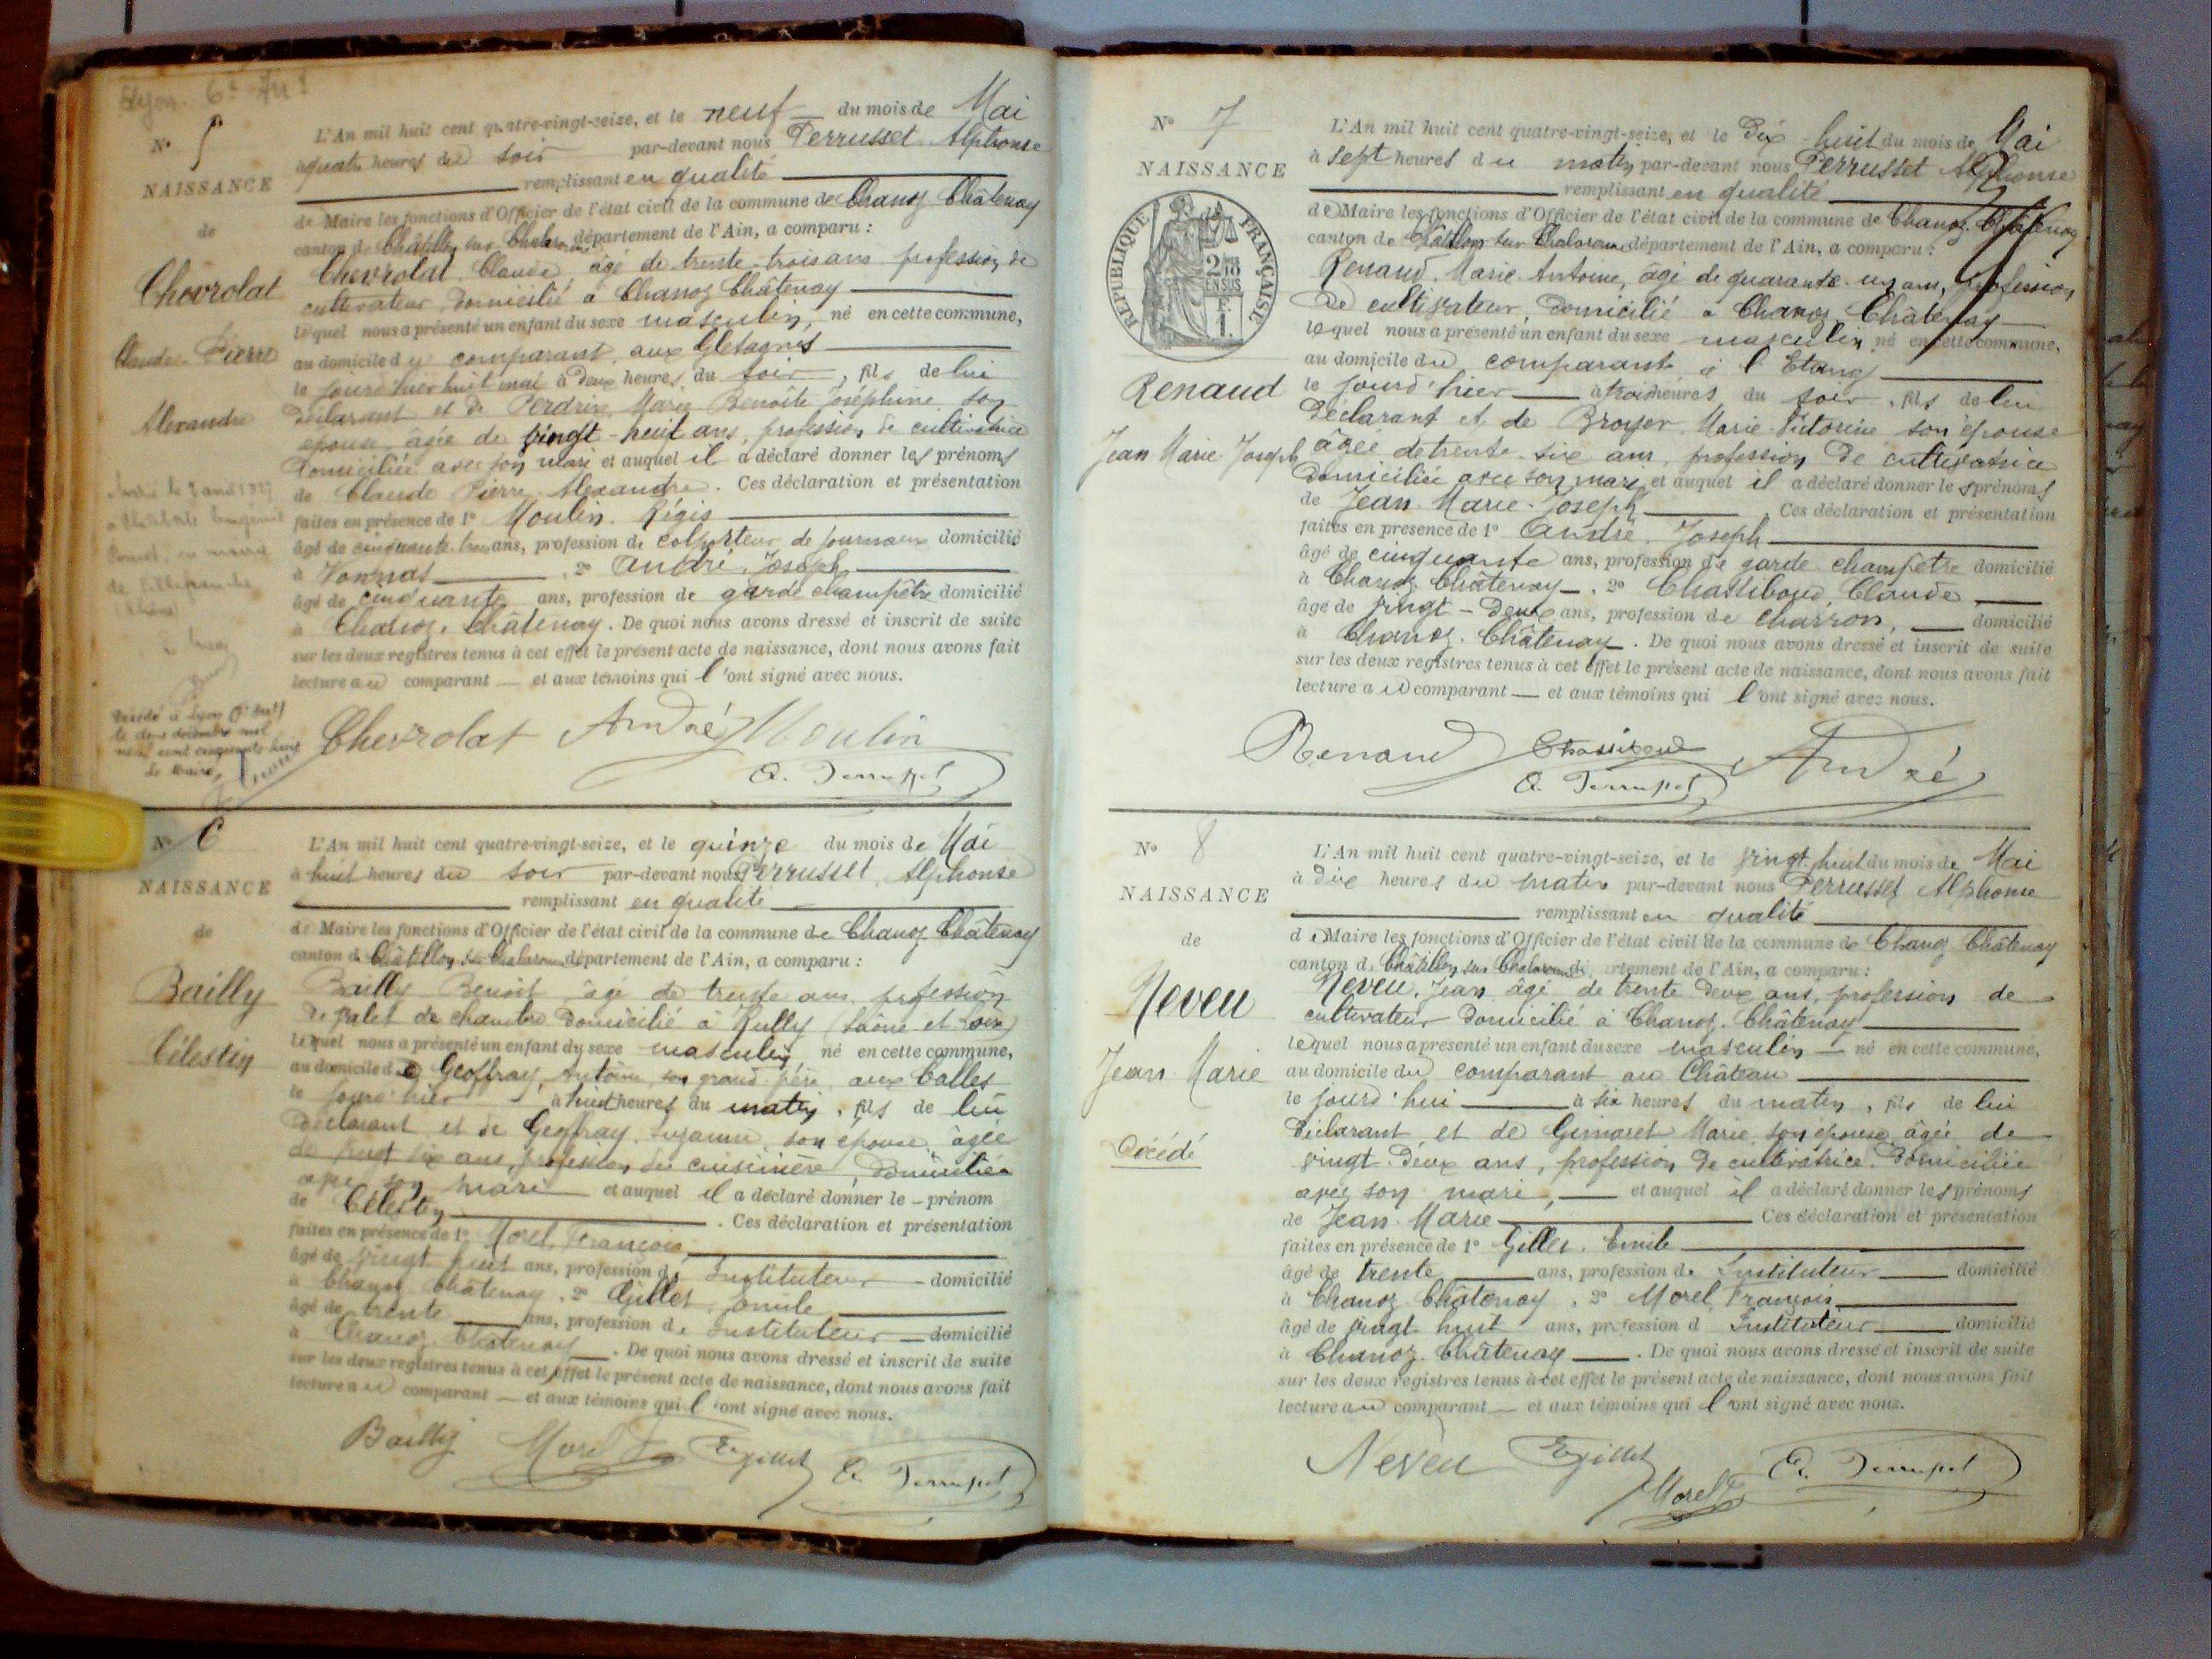 Lyon. 6e
N° 5
NAISSANCE
de
Chevrolat
Claude Pierre
Alexandre
L'An mil huit cent quatre-vingt-seize, et le neuf du mois de Mai
a quatre heures du soir par-devant nous Perrusset Alphonse
remplissant en qualité
de Maire les fonctions d'Officier de l'état civil de la commune de Chanoz Châtenay
canton de Châtillon sur Chalaronne département de l'Ain, a comparu :
Chevrolat Claude âgé de trente-trois ans profession de
cultivateur domicilié à Chanoz Châtenay
lequel nous a présenté un enfant du sexe masculin, né en cette commune,
au domicile du comparant aux
le jourd'hier huit mai à deux heures du soir, fils de lui
déclarant et de Perdrix Marie Benoîte Joséphine son
épouse âgée de vingt-huit ans, profession de cultivatrice
domiciliée avec son mari et auquel il a déclaré donner les prénoms
de Claude Pierre Alexandre. Ces déclaration et présentation
faites en présence de 1° Moulin Régis
âgé de cinquante trois ans, profession de colporteur de journaux domicilié
à Vonnas, 2° André Joseph
âgé de cinquante ans, profession de garde champêtre domicilié
à Chanoz Châtenay. De quoi nous avons dressé et inscrit de suite
sur les deux registres tenus à cet effet le présent acte de naissance, dont nous avons fait
lecture au comparant et aux témoins qui l'ont signé avec nous.
Décédé à Lyon
le deux décembre mil
neuf cent cinquante
Le Maire,
Chevrolat André Moulin
A. Perrusset
N° 6
NAISSANCE
de
Bailly
Célestin
L'An mil huit cent quatre-vingt-seize, et le quinze du mois de Mai
à huit heures du soir par-devant nous Perrusset Alphonse
remplissant en qualité
de Maire les fonctions d'Officier de l'état civil de la commune de Chanoz Châtenay
canton de Châtillon sur Chalaronne département de l'Ain, a comparu :
Bailly Benoit âgé de trente ans profession
de valet de chambre domicilié à Rully (Saône et Loire)
lequel nous a présenté un enfant du sexe masculin né en cette commune,
au domicile de Geoffray, Antoine son grand-père aux Calles
le jourd'hier à huit heures du matin, fils de lui
déclarant et de Geoffray Suzanne son épouse âgée
de vingt six ans, profession de cuisinière, domiciliée
avec son mari et auquel il a déclaré donner le prénom
de Célestin. Ces déclaration et présentation
faites en présence de 1° Morel François
âgé de vingt huit ans, profession d'Instituteur domicilié
à Chanoz Châtenay, 2° Gillet Emile
âgé de trente ans, profession d'Instituteur domicilié
à Chanoz Châtenay. De quoi nous avons dressé et inscrit de suite
sur les deux registres tenus à cet effet le présent acte de naissance, dont nous avons fait
lecture au comparant et aux témoins qui l'ont signé avec nous.
Bailly Morel F Egillet A. Perrusset
N° 7
NAISSANCE
de
RÉPUBLIQUE FRANÇAISE
Renaud
Jean Marie Joseph
L'An mil huit cent quatre-vingt-seize, et le dix-huit du mois de Mai
à sept heures du matin par-devant nous Perrusset Alphonse
remplissant en qualité
de Maire les fonctions d'Officier de l'état civil de la commune de Chanoz Châtenay
canton de Châtillon sur Chalaronne département de l'Ain, a comparu :
Renaud Marie Antoine, âgé de quarante-un ans, profession
de cultivateur, domicilié à Chanoz Châtenay
lequel nous a présenté un enfant du sexe masculin né en cette commune,
au domicile du comparant à l'Etang
le jourd'hier à trois heures du soir, fils de lui
déclarant et de Broyer Marie Victorine son épouse
âgée de trente-six ans, profession de cultivatrice
domiciliée avec son mari et auquel il a déclaré donner les prénoms
de Jean Marie Joseph. Ces déclaration et présentation
faites en présence de 1° André Joseph
âgé de cinquante ans, profession de garde champêtre domicilié
à Chanoz Châtenay, 2° Chassiboud Claude
âgé de vingt-deux ans, profession de charron, domicilié
à Chanoz Châtenay. De quoi nous avons dressé et inscrit de suite
sur les deux registres tenus à cet effet le présent acte de naissance, dont nous avons fait
lecture au comparant et aux témoins qui l'ont signé avec nous.
Renaud Chassiboud André
A. Perrusset
N° 8
NAISSANCE
de
Neveu
Jean Marie
Décédé
L'An mil huit cent quatre-vingt-seize, et le vingt-huit du mois de Mai
à dix heures du matin par-devant nous Perrusset Alphonse
remplissant en qualité
de Maire les fonctions d'Officier de l'état civil de la commune de Chanoz Châtenay
canton de Châtillon sur Chalaronne département de l'Ain, a comparu :
Neveu, Jean âgé de trente deux ans, profession de
cultivateur domicilié à Chanoz Châtenay
lequel nous a présenté un enfant du sexe masculin né en cette commune,
au domicile du comparant au Château
le jourd'hui à six heures du matin, fils de lui
déclarant et de Gimaret Marie son épouse âgée de
vingt-deux ans, profession de cultivatrice domiciliée
avec son mari, et auquel il a déclaré donner les prénoms
de Jean Marie Ces déclaration et présentation
faites en présence de 1° Gillet Emile
âgé de trente ans, profession d'Instituteur domicilié
à Chanoz Châtenay, 2° Morel François
âgé de vingt huit ans, profession d Instituteur domicilié
à Chanoz Châtenay. De quoi nous avons dressé et inscrit de suite
sur les deux registres tenus à cet effet le présent acte de naissance, dont nous avons fait
lecture au comparant et aux témoins qui l'ont signé avec nous.
Neveu Egillet Morel F A. Perrusset